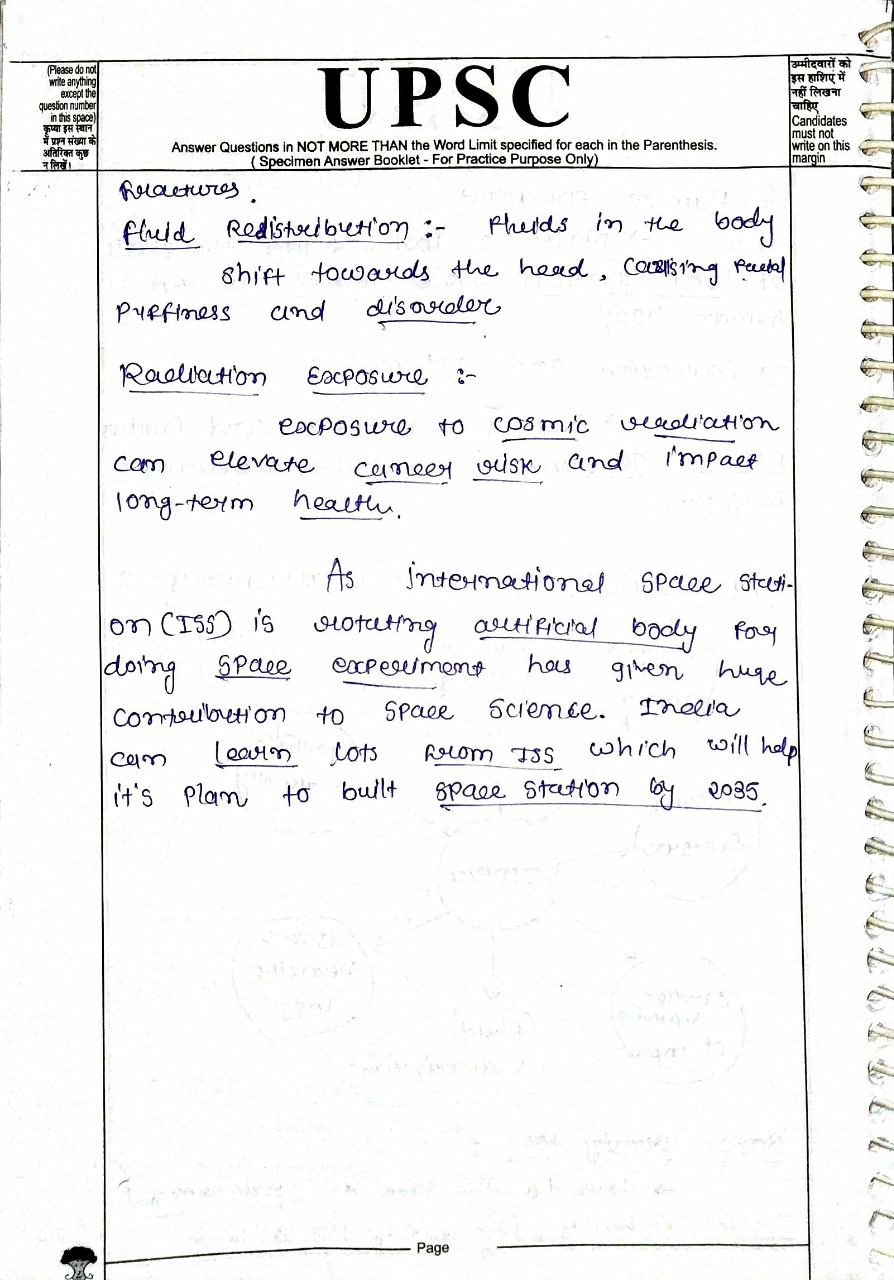 (Please do not
write anything
except the
question number
in this space)
कृपया इस स्थान
में प्रश्न संख्या के
अतिरिक्त कुछ
न लिखें।
UPSC
Answer Questions in NOT MORE THAN the Word Limit specified for each in the Parenthesis.
( Specimen Answer Booklet - For Practice Purpose Only)
उम्मीदवारों को
इस हाशिए में
नहीं लिखना
चाहिए
Candidates
must not
write on this
margin
Fractures.
Fluid Redistribution :- Fluids in the body
shift towards the head, causing facial
puffiness and disorder
Radiation Exposure :-
exposure to cosmic radiation
can elevate cancer risk and impact
long-term health.
As international space stati-
on (ISS) is rotating artificial body for
doing space experiment has given huge
contribution to space science. India
can learn lots from ISS which will help
it's plan to built space station by 2035.
Page